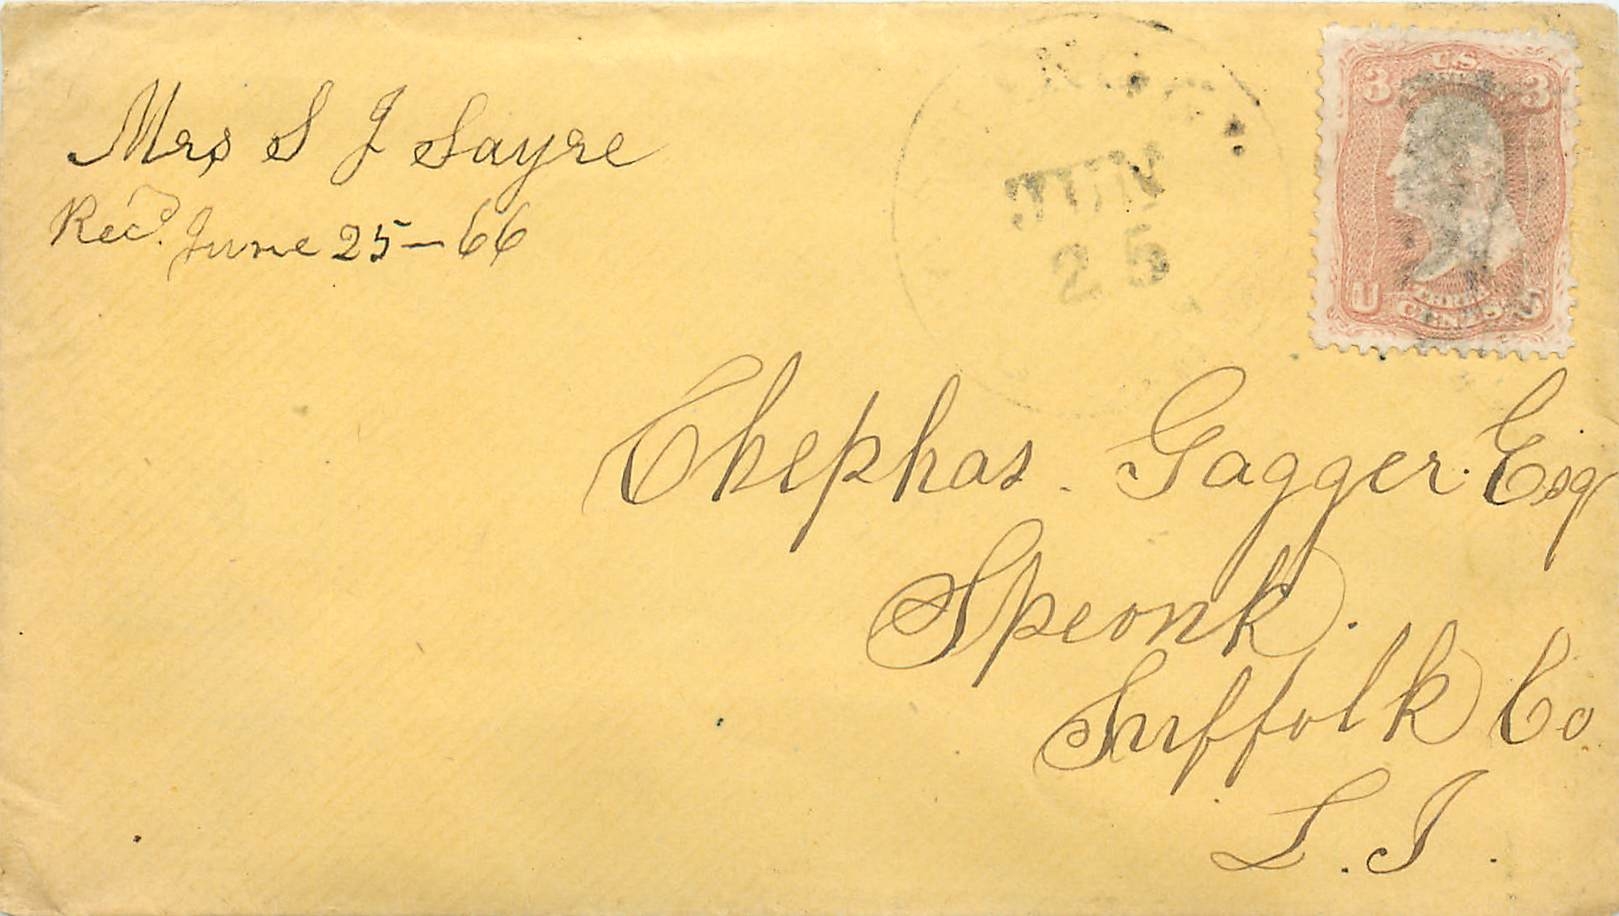 Mrs S J Sayre
Recd. June 25 - 66
JUN
25
3 U.S 3
U THREE S
CENTS
Chephas. Gagger. Esq
Speonk.
Suffolk Co
L.I.